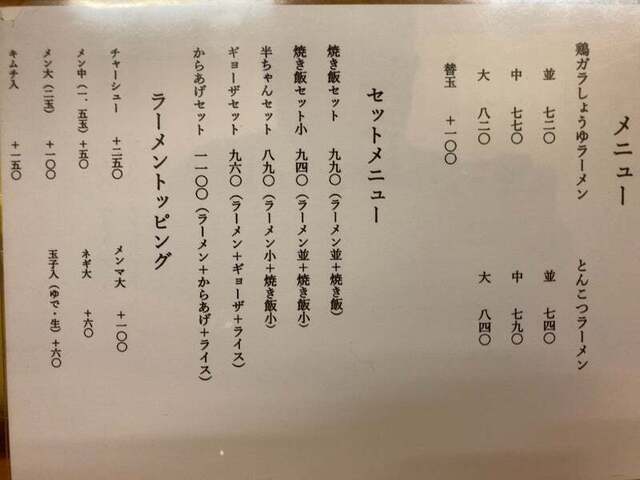 メニュー
鶏ガラしょうゆラーメン
並 七二〇
中 七七〇
大 八二〇
替玉 +一〇〇
とんこつラーメン
並 七四〇
中 七九〇
大 八四〇
セットメニュー
焼き飯セット 九九〇(ラーメン並+焼き飯)
焼き飯セット小 九四〇(ラーメン並+焼き飯小)
半ちゃんセット 八九〇(ラーメン小+焼き飯小)
ギョーザセット 九六〇(ラーメン+ギョーザ+ライス)
からあげセット 一一〇〇(ラーメン+からあげ+ライス)
ラーメントッピング
チャーシュー +二五〇
メン中(一、五玉)+五〇
メン大(二玉) +一〇〇
キムチ入 +一五〇
メンマ大 +一〇〇
ネギ大 +六〇
玉子入(ゆで・生)+六〇